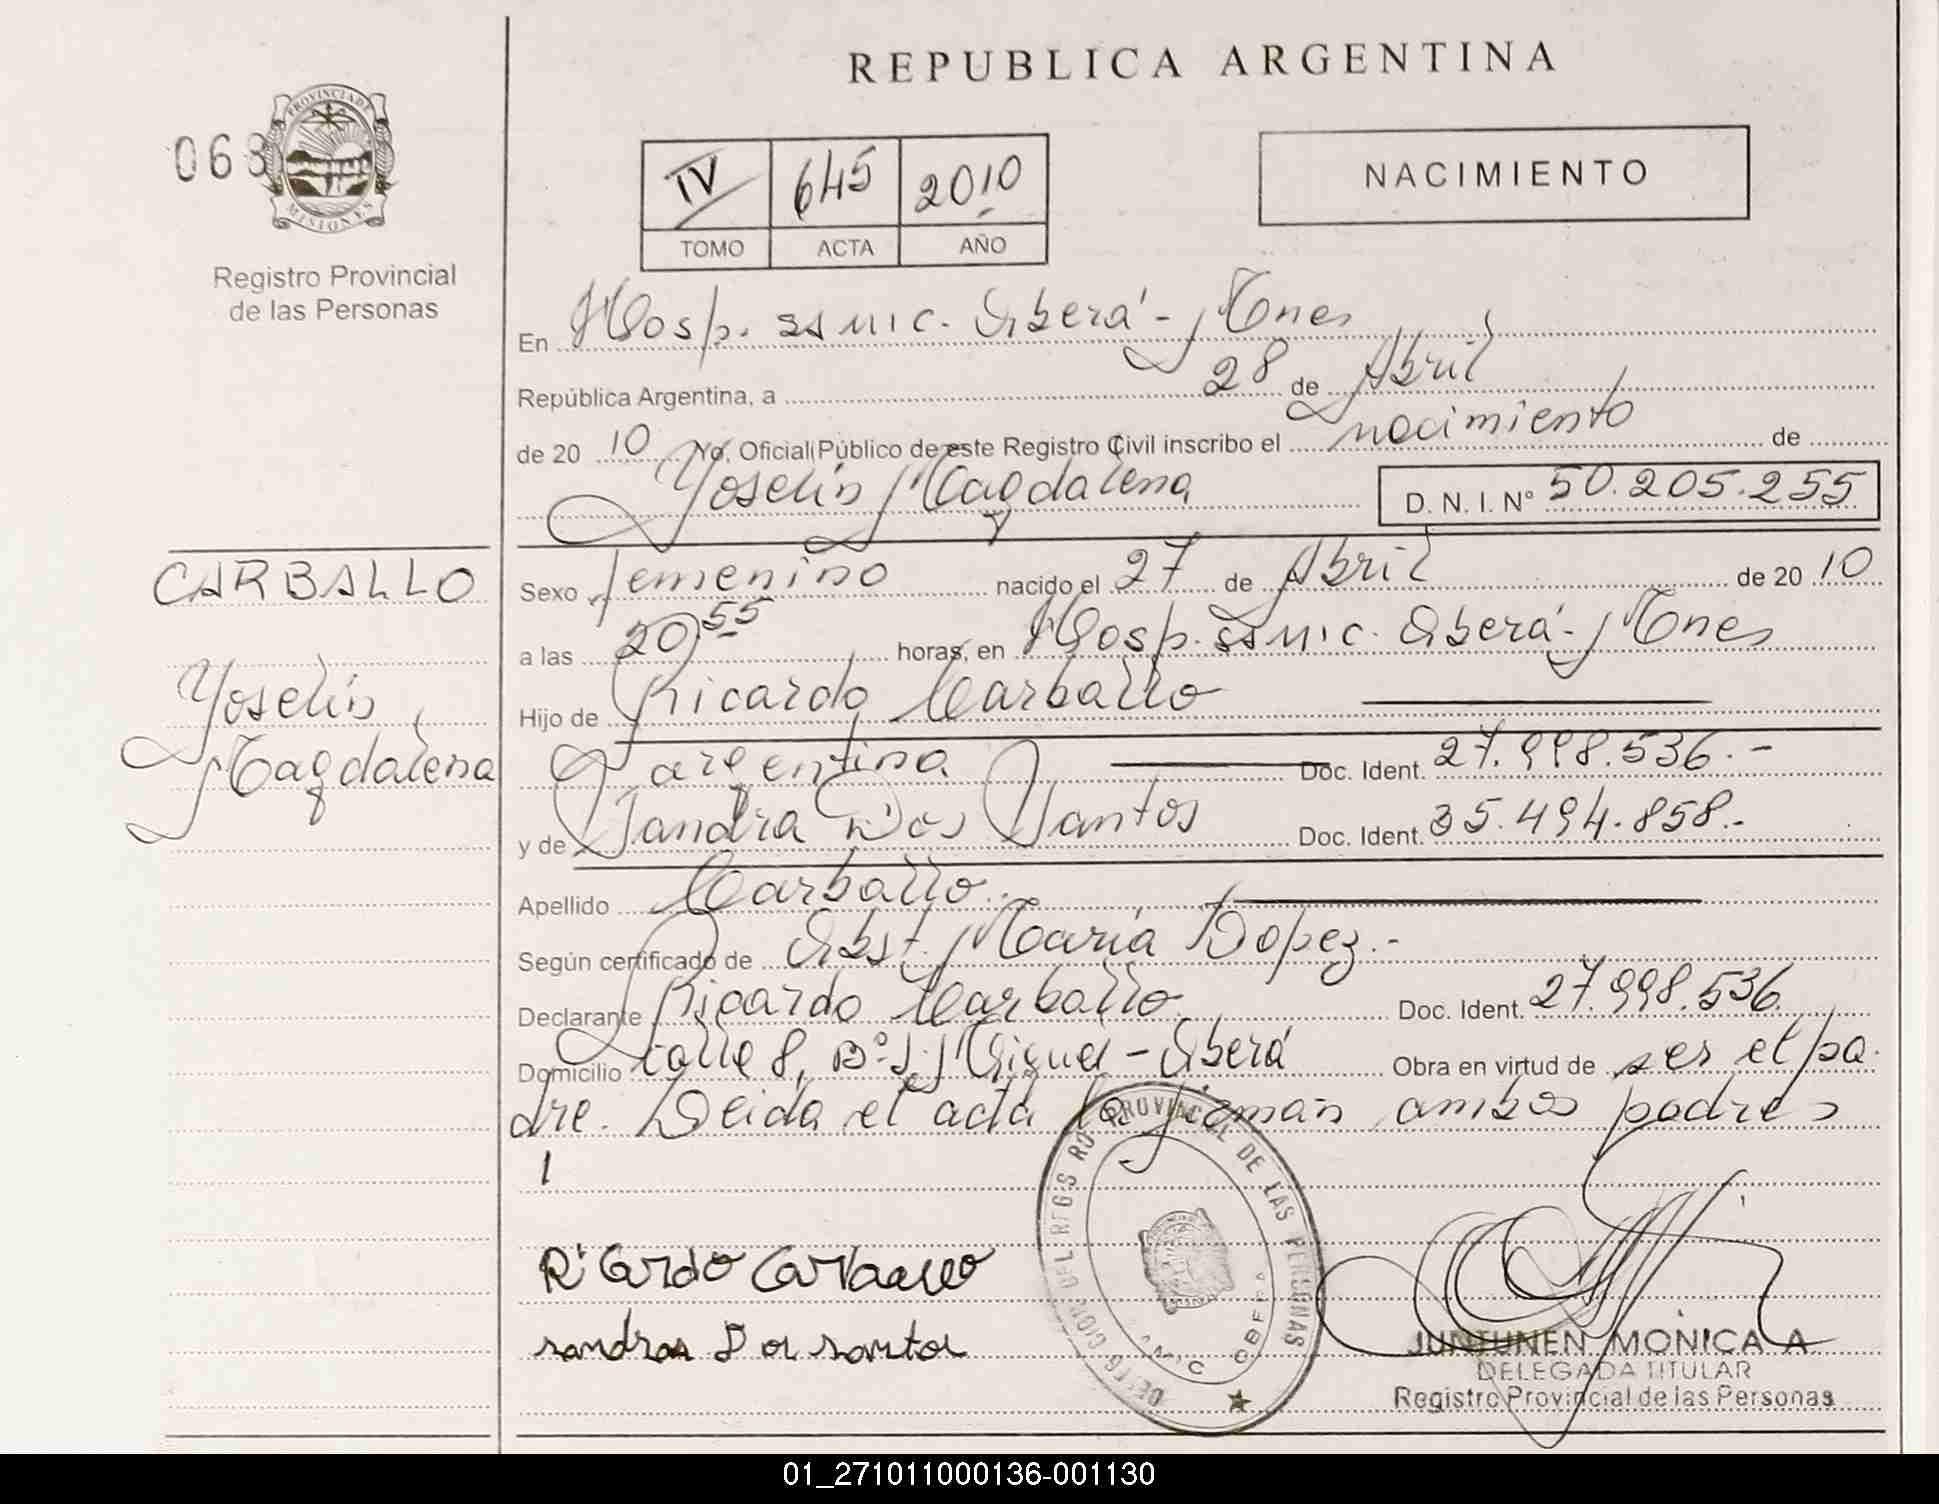 REPUBLICA ARGENTINA
063
PROVINCIA DE
MISIONES
Registro Provincial
de las Personas
IV 645 2010
TOMO ACTA AÑO
NACIMIENTO
En Hosp. SSMIC. Oberá - Mnes
República Argentina, a 28 de Abril
de 20 10 Yo, Oficial Público de este Registro Civil inscribo el nacimiento de
Yoselin Magdalena D. N. I. Nº 50.205.255
CARBALLO
Yoselin
Magdalena
Sexo femenino nacido el 27 de Abril de 20 10
a las 20,55 horas, en Hosp. SSMIC. Oberá - Mnes
Hijo de Ricardo Carballo
argentina Doc. Ident. 27.998.536.-
y de Sandra Dos Santos Doc. Ident. 35.494.858.-
Apellido Carballo.
Según certificado de Obst. María Lopez.-
Declarante Ricardo Carballo Doc. Ident. 27.998.536
Domicilio calle 8, Bº S. Miguel - Oberá Obra en virtud de ser el pa-
dre. Leida el acta la firman ambos padres
Ricardo Carballo
sandra Dos santos
PROVINCIAL DE LAS PERSONAS
JUNTUNEN MONICA A
DELEGADA TITULAR
Registro Provincial de las Personas
01_271011000136-001130